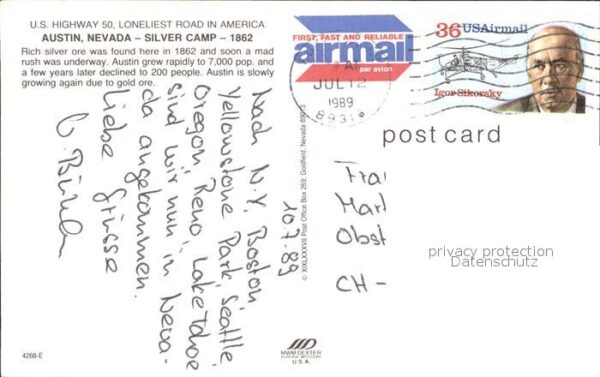 U.S. HIGHWAY 50, LONELIEST ROAD IN AMERICA
AUSTIN, NEVADA – SILVER CAMP – 1862
Rich silver ore was found here in 1862 and soon a mad
rush was underway. Austin grew rapidly to 7,000 pop. and
a few years later declined to 200 people. Austin is slowly
growing again due to gold ore.
FIRST, FAST AND RELIABLE
airmail
par avion
JUL 12
1989
36 USAirmail
Igor Sikorsky
post card
10.7.89
Nach N.Y. Boston
Yellowstone Park, Seattle,
Oregon, Reno, Lake Tahoe
sind wir nun in Neva-
da angekommen.
Liebe Grüsse
© XIXLXXXVIII Post Office Box 269, Goldfield, Nevada 89013
Frau
Mar
Obst
CH -
privacy protection
Datenschutz
4268-E
MWM DEXTER
U.S.A.